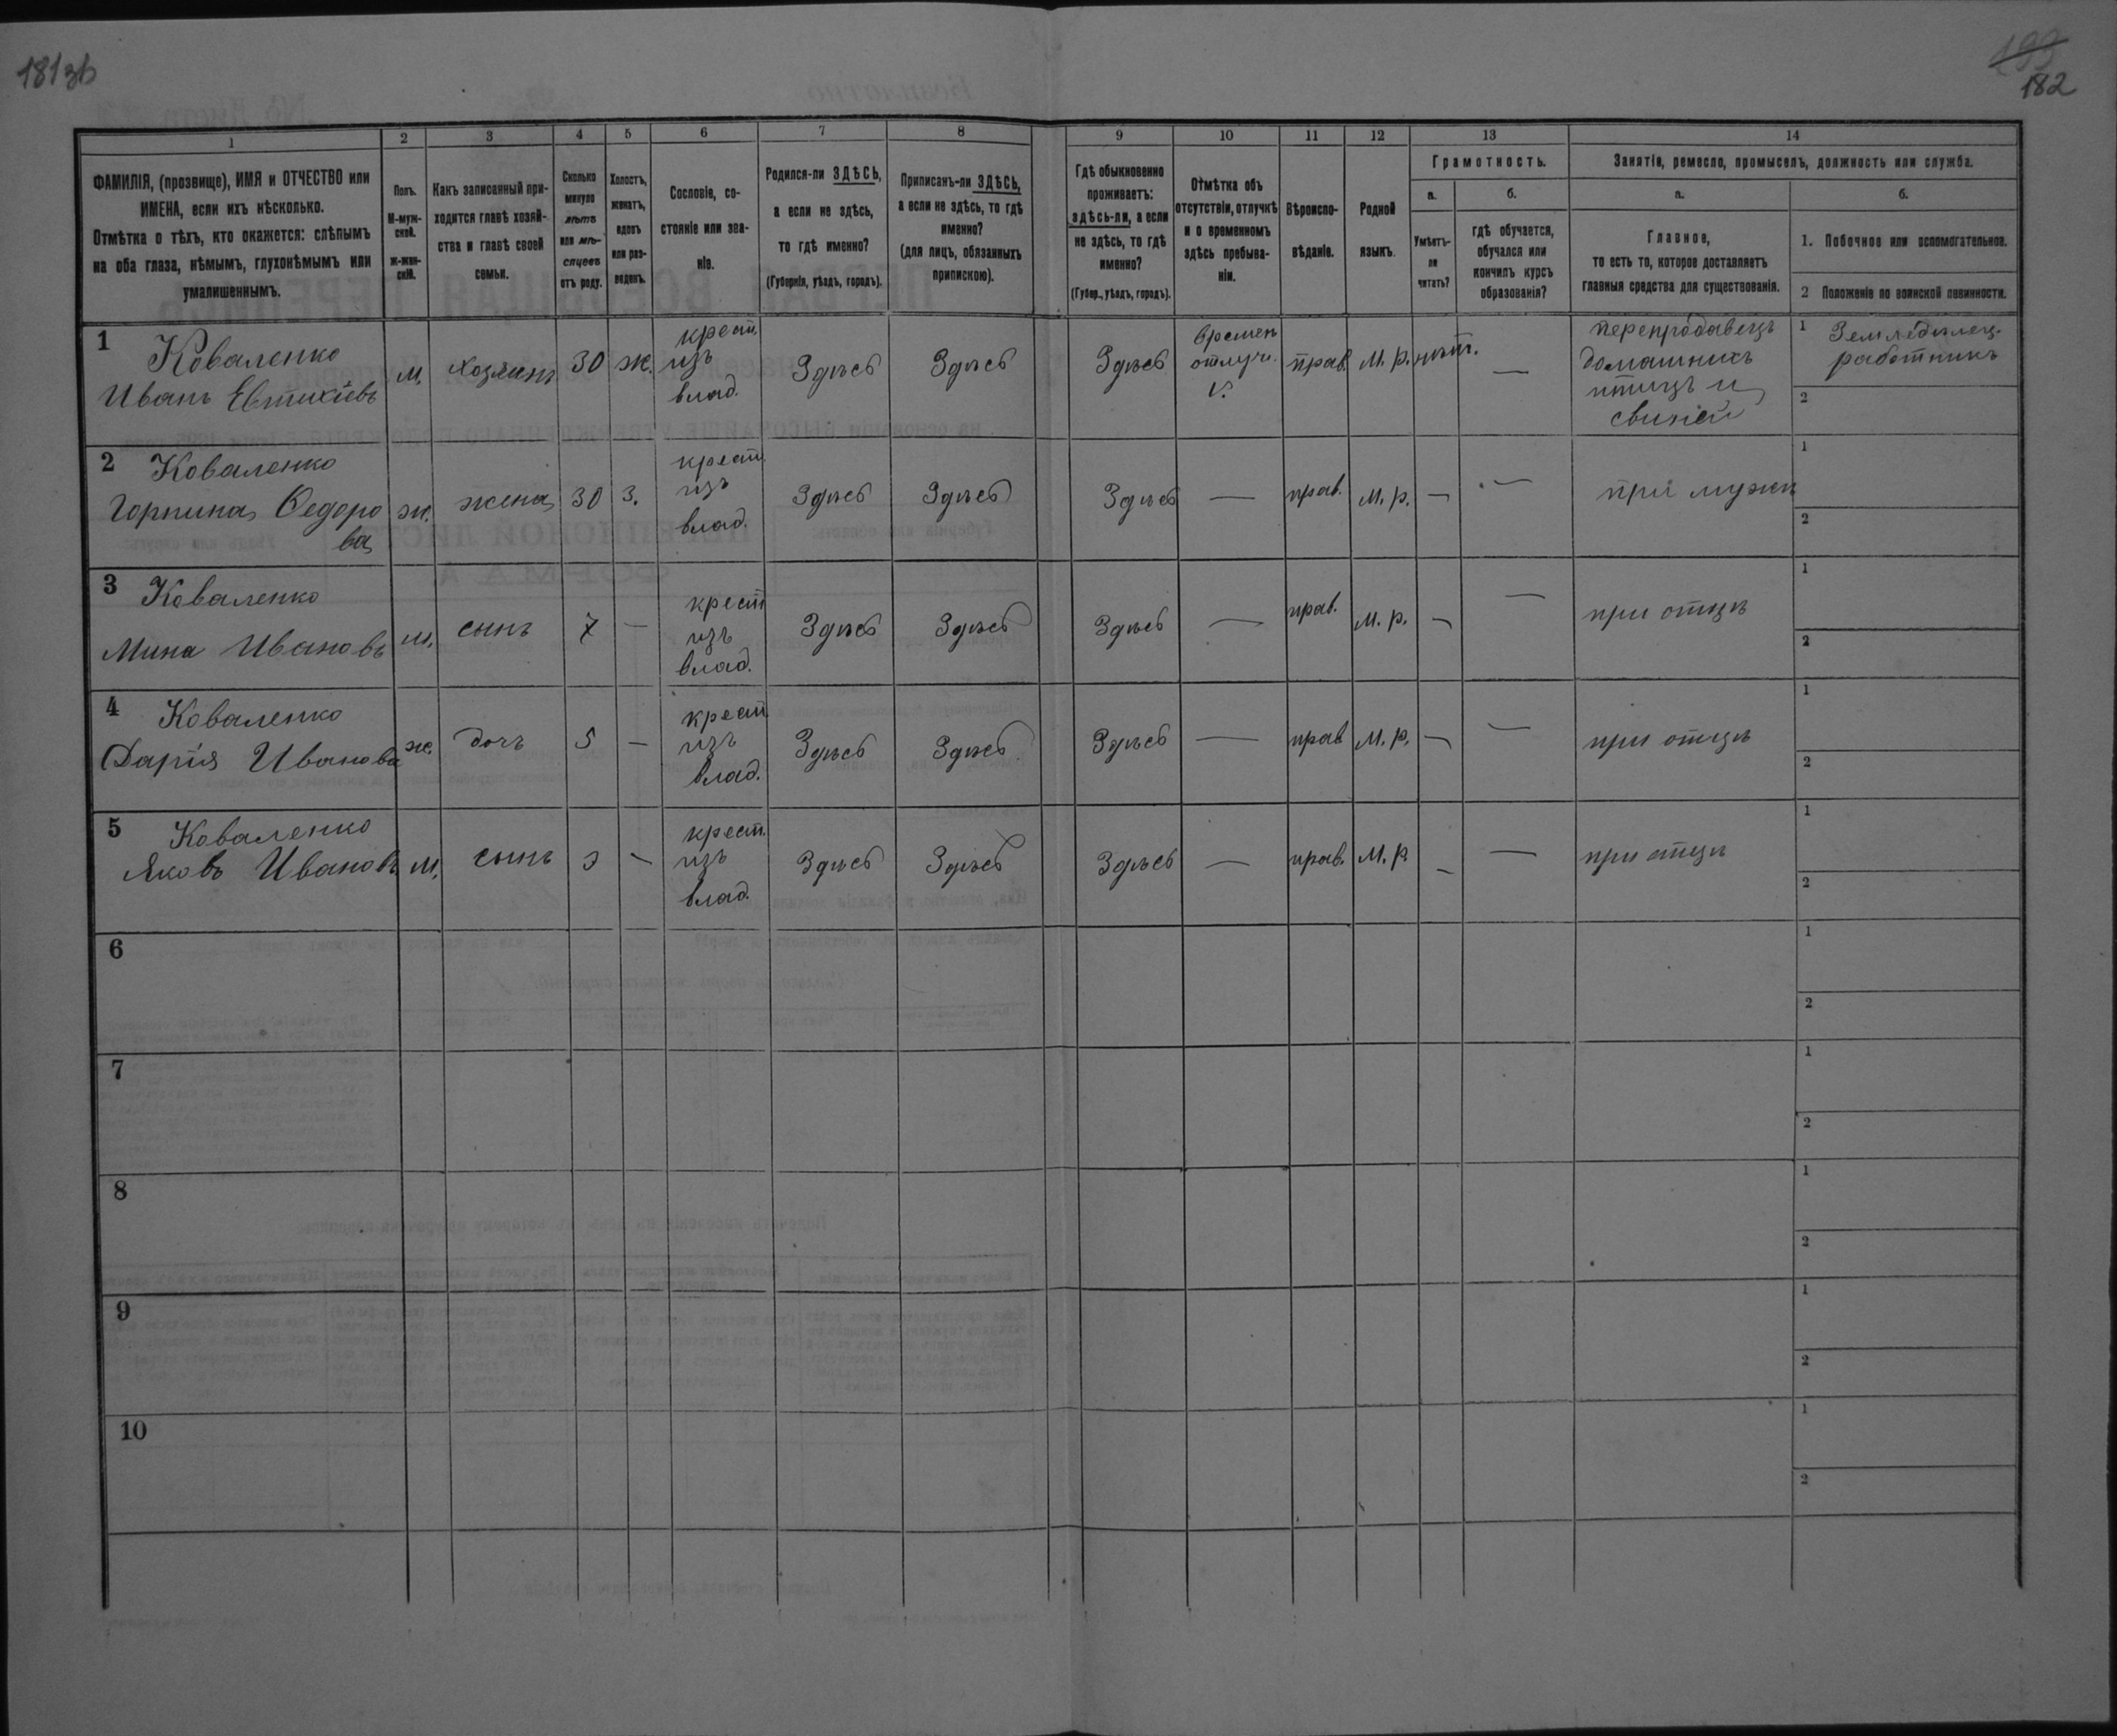 181зв
199
182
1
2
3
4
5
6
7
8
9
10
11
12
13
14
ФАМИЛІЯ, (прозвище), ИМЯ и ОТЧЕСТВО или
ИМЕНА, если ихъ нѣсколько.
Отмѣтка о тѣхъ, кто окажется: слѣпымъ
на оба глаза, нѣмымъ, глухонѣмымъ или
умалишеннымъ.
Полъ.
М-муж-
ской.
ж-жен-
скій.
Какъ записанный при-
ходится главѣ хозяй-
ства и главѣ своей
семьи.
Сколько
минуло
лѣтъ
или мѣ-
сяцевъ
отъ роду.
Холостъ,
женатъ,
вдовъ
или раз-
веденъ.
Сословіе, со-
стояніе или зва-
ніе.
Родился-ли ЗДѢСЬ,
а если не здѣсь,
то гдѣ именно?
(Губернія, уѣздъ, городъ).
Приписанъ-ли ЗДѢСЬ,
а если не здѣсь, то гдѣ
именно?
(для лицъ, обязанныхъ
припискою).
Гдѣ обыкновенно
проживаетъ:
здѣсь-ли, а если
не здѣсь, то гдѣ
именно?
(Губер., уѣздъ, городъ).
Отмѣтка объ
отсутствіи, отлучкѣ
и о временномъ
здѣсь пребыва-
ніи.
Вѣроиспо-
вѣданіе.
Родной
языкъ.
Грамотность.
а.
Умѣетъ-
ли
читать?
б.
гдѣ обучается,
обучался или
кончилъ курсъ
образованія?
Занятіе, ремесло, промыселъ, должность или служба.
а.
Главное,
то есть то, которое доставляетъ
главныя средства для существованія.
б.
1. Побочное или вспомогательное.
2 Положеніе по воинской повинности.
1
Коваленко
Иванъ Евтихіевъ
м.
хозяинъ
30
ж.
крест.
изъ
влад.
Здѣсь
Здѣсь
Здѣсь
времен
отлуч.
прав.
М. р.
нѣт.
—
перепродавецъ
домашнихъ
птицъ и
свиней
1 Земледѣлец.
работникъ
2
2
Коваленко
Горпина Федоро
ва
ж.
жена
30
з.
крест.
изъ
влад.
Здѣсь
Здѣсь
Здѣсь
—
прав.
М. р.
—
—
при мужѣ
1
2
3
Коваленко
Мина Ивановъ
м.
сынъ
7
—
крест
изъ
влад.
Здѣсь
Здѣсь
Здѣсь
—
прав.
М. р.
—
—
при отцѣ
1
2
4
Коваленко
Дарія Иванова
ж.
дочь
5
—
крест.
изъ
влад.
Здѣсь
Здѣсь
Здѣсь
—
прав.
М. р.
—
—
при отцѣ
1
2
5
Коваленко
Яковъ Ивановъ
м.
сынъ
3
—
крест.
изъ
влад.
Здѣсь
Здѣсь
Здѣсь
—
прав.
М. р
—
—
при отцѣ
1
2
6
1
2
7
1
2
8
1
2
9
1
2
10
1
2